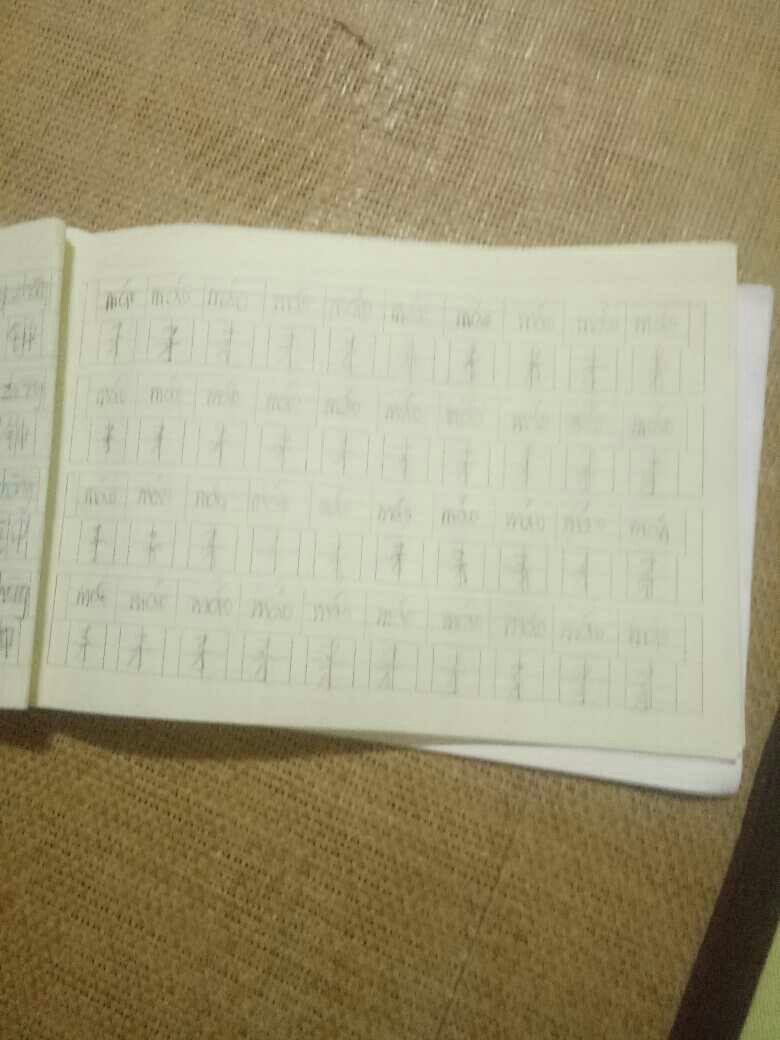 máo máo máo máo máo máo máo máo máo máo
矛 矛 矛 矛 矛 矛 矛 矛 矛 矛
máo máo máo máo máo máo máo máo máo máo
矛 矛 矛 矛 矛 矛 矛 矛 矛 矛
máo máo máo máo máo máo máo máo máo máo
矛 矛 矛 矛 矛 矛 矛 矛 矛 矛
máo máo máo máo máo máo máo máo máo máo
矛 矛 矛 矛 矛 矛 矛 矛 矛 矛